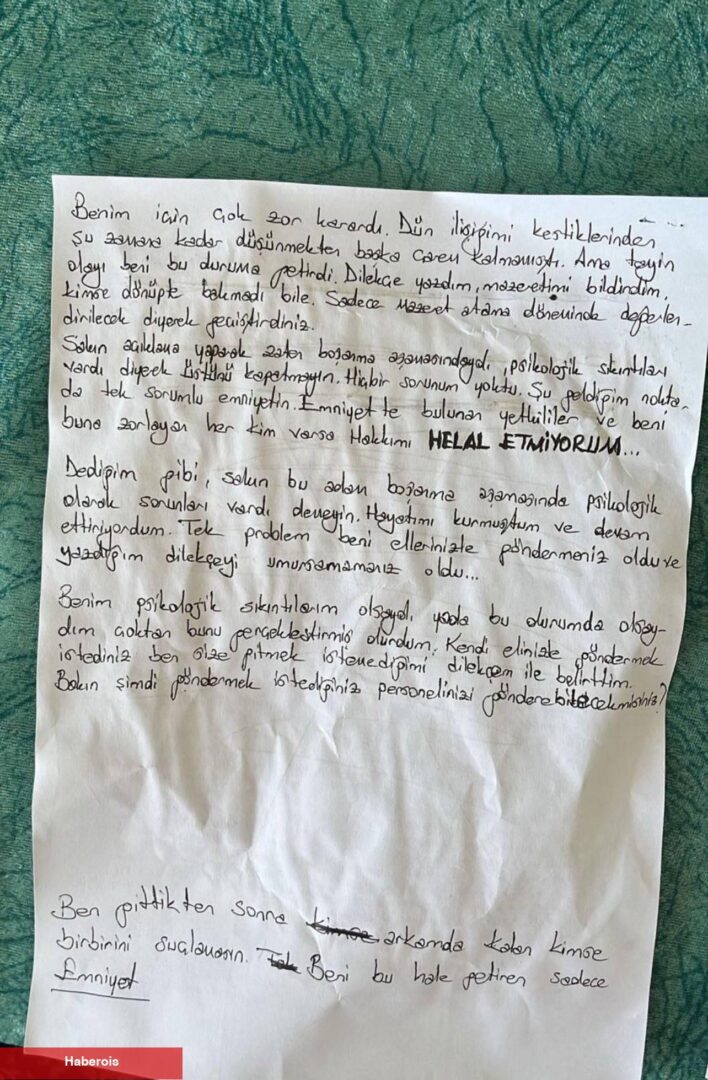 Benim için çok zor karardı. Dün ilişiğimi kestiklerinden
şu zamana kadar düşünmekten başka çarem kalmamıştı. Ama tayin
olayı beni bu duruma getirdi. Dilekçe yazdım, mazeretimi bildirdim,
kimse dönüpte bakmadı bile. Sadece mazeret atama döneminde değerlen-
dirilecek diyerek geçiştirdiniz.
Sakın açıklama yaparak zaten boşanma aşamasındaydı, psikolojik sıkıntıları
vardı diyerek üstünü kapatmayın. Hiçbir sorunum yoktu. Şu geldiğim nokta-
da tek sorumlu emniyetin. Emniyet'te bulunan yetkililer ve beni
buna zorlayan her kim varsa Hakkımı HELAL ETMİYORUM...
Dediğim gibi, sakın bu adam boşanma aşamasında psikolojik
olarak sorunları vardı demeyin. Hayatımı kurmuştum ve devam
ettiriyordum. Tek problem beni ellerinizle göndermeniz oldu ve
yazdığım dilekçeyi umursamamanız oldu...
Benim psikolojik sıkıntılarım olsaydı, yada bu durumda olsay-
dım çoktan bunu gerçekleştirmiş olurdum. Kendi elinizle göndermek
istediniz ben size gitmek istemediğimi dilekçem ile belirttim.
Bakın şimdi göndermek istediğiniz personelinizi gönderebilecekmisiniz?
Ben gittikten sonra kimse arkamda kalan kimse
birbirini suçlamasın. Tek Beni bu hale getiren sadece
Emniyet
Haberois